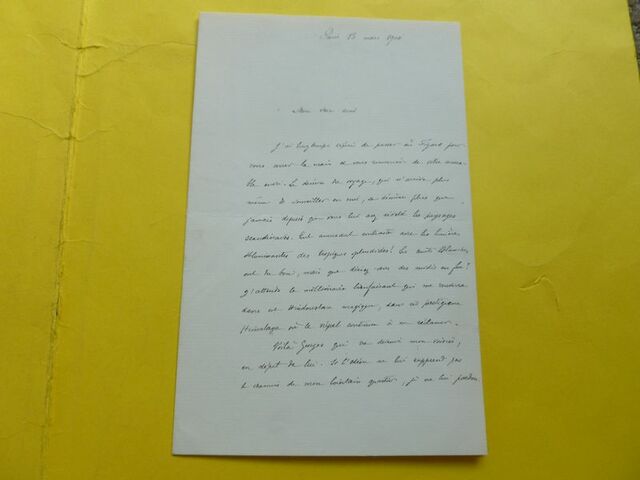 Paris 15 mars 1900
Mon cher ami
J'ai longtemps espéré de passer au Figaro pour
vous serrer la main de vous remercier de votre
envoi. Le démon du voyage, qui n'arrête plus
de sommeiller en moi, se démène plus que
jamais depuis que vous lui avez révélé les paysages
scandinaves. Quel amusant contraste avec les lumières
des tropiques splendides! Les nuits blanches,
ont du bon, mais que diriez-vous des midis en feu?
J'attends le millionnaire bienfaisant qui me ramènera
dans cet Hindoustan magique, dans ce prodigieux
Himalaya où le Népal continue à me réclamer.
Voilà Georges qui va devenir mon voisin,
en dépit de lui. Si l'Odéon ne lui rapprend pas
le chemin de mon lointain quartier, je ne lui pardon